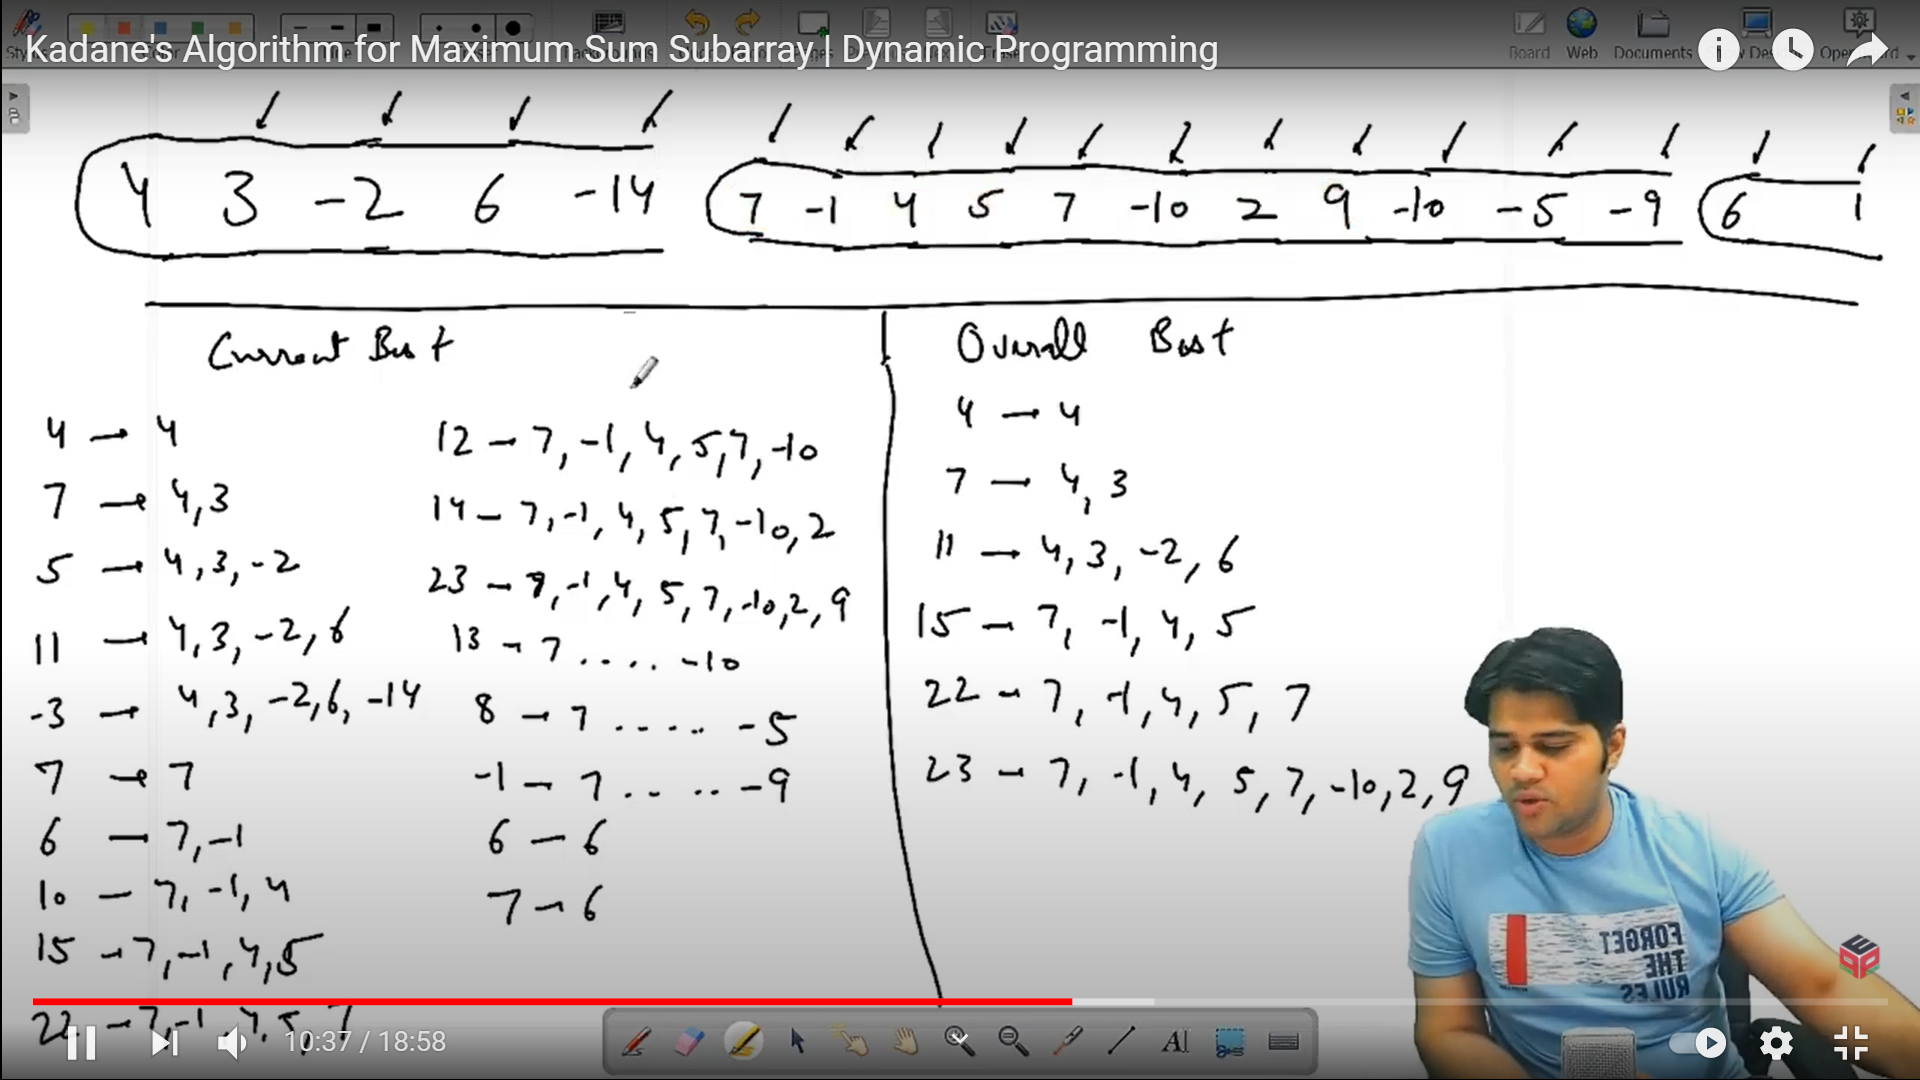 Kadane's Algorithm for Maximum Sum Subarray | Dynamic Programming
Board Web Documents
4 3 -2 6 -14 7 -1 4 5 7 -10 2 9 -10 -5 -9 6 1
Current Best
4 → 4
7 → 4,3
5 → 4,3,-2
11 → 4,3,-2,6
-3 → 4,3,-2,6,-14
7 → 7
6 → 7,-1
10 — 7,-1,4
15 → 7,-1,4,5
22 → 7,-1,4,5,7
12 — 7,-1,4,5,7,-10
14 — 7,-1,4,5,7,-10,2
23 — 7,-1,4,5,7,-10,2,9
13 → 7 .... -10
8 → 7 ..... -5
-1 — 7 .. .. -9
6 — 6
7 → 6
Overall Best
4 → 4
7 — 4,3
11 → 4,3,-2,6
15 — 7,-1,4,5
22 — 7,-1,4,5,7
23 — 7,-1,4,5,7,-10,2,9
FORGET
THE
RULES
10:37 / 18:58
AI